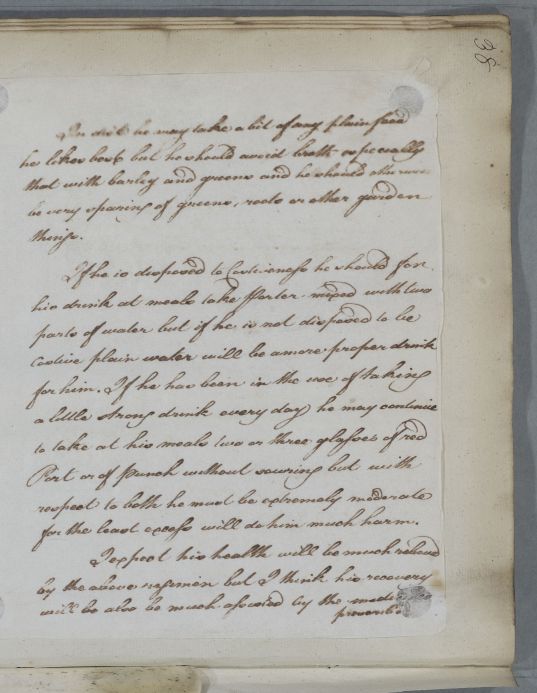 38
In diet he may take a bit of any plain food
he likes best but he should avoid broth especially
that with barley and greens and he should otherwise
be very sparing of greens, roots or other garden
things.
If he is disposed to Costiveness he should for
his drink at meals take Porter mixed with two
parts of water but if he is not disposed to be
costive plain water will be a more proper drink
for him. If he has been in the use of taking
a little strong drink every day he may continue
to take at his meals two or three glasses of red
Port or of Punch without souring but with
respect to both he must be extremely moderate
for the least excess will do him much harm.
I expect his health will be much relieved
by the above regimen but I think his recovery
will be also be much assisted by the